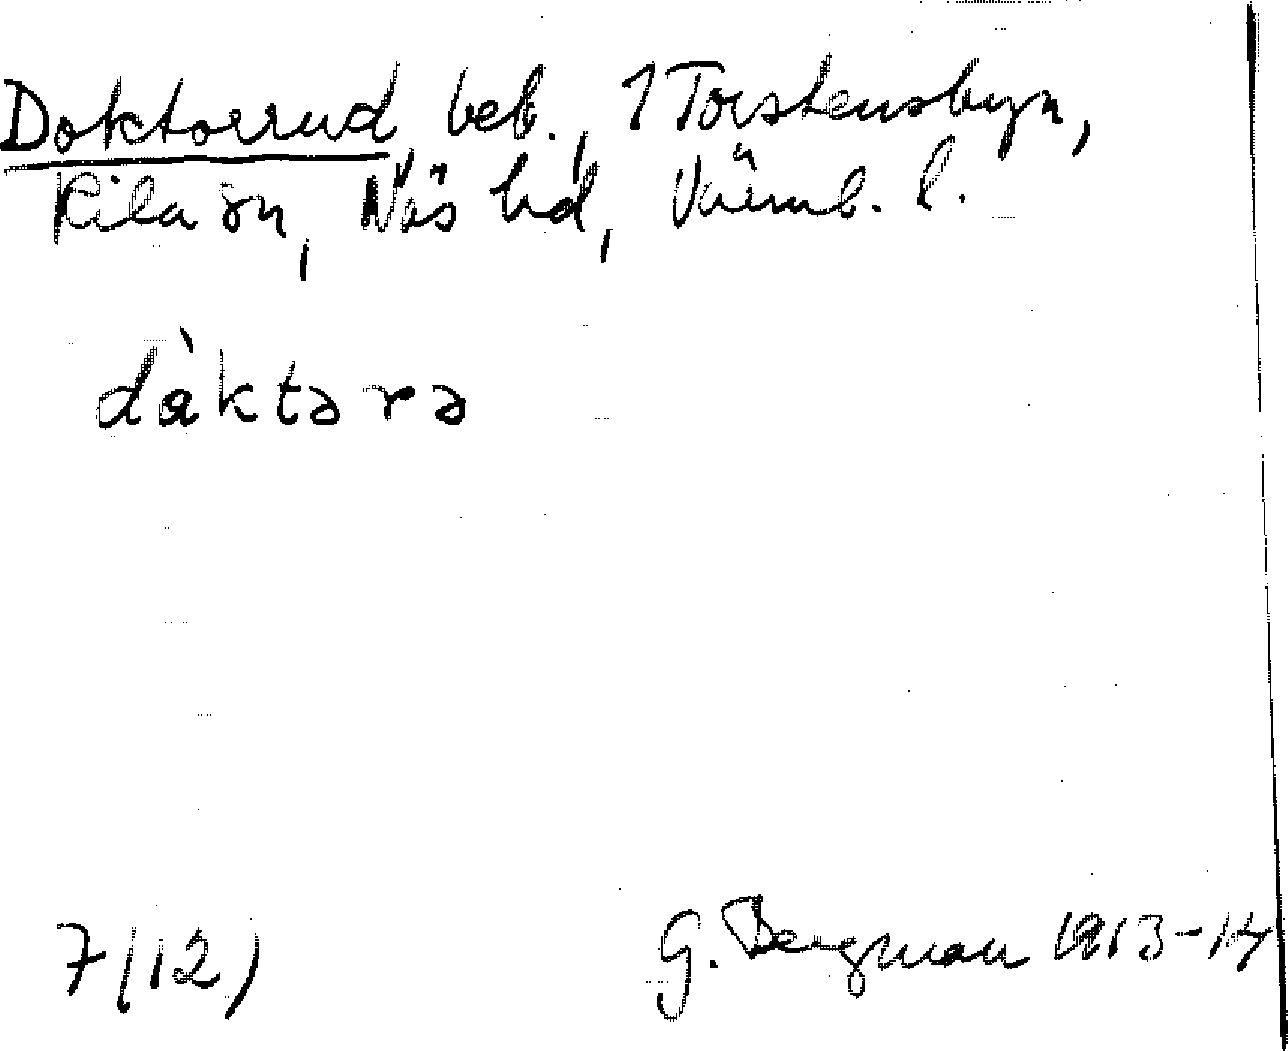 Doktorrud, beb., 1 Torstensbyn,
Kila sn, Näs hd, Värml. l.
dàktərə
7(12)
G. Bergman 1913-14